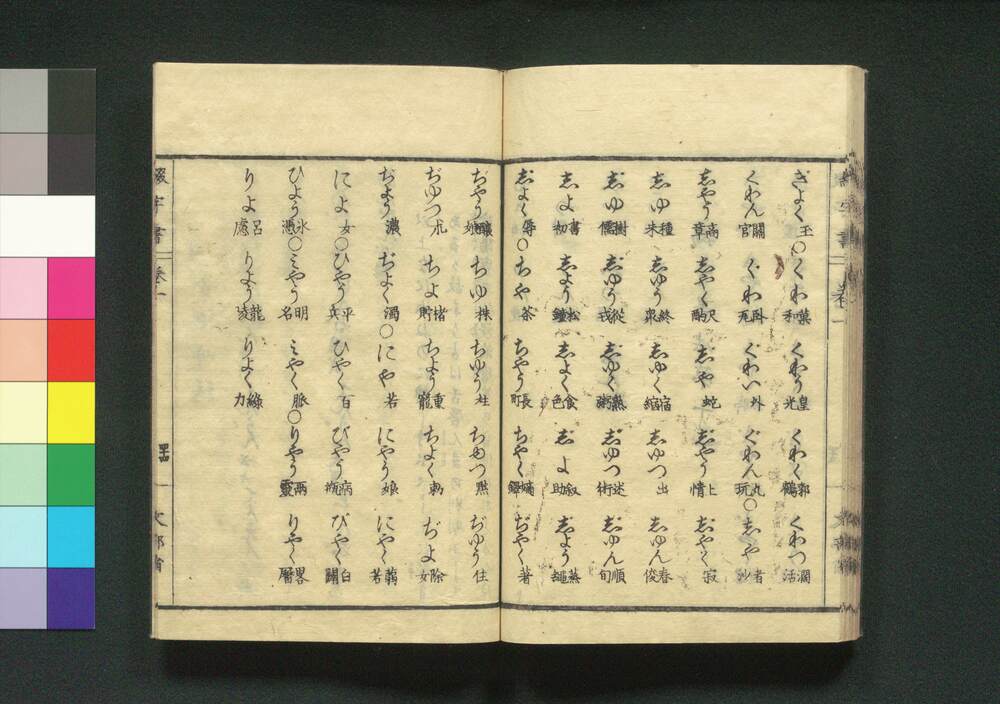 ぎよく玉〇くわ菓和 くわう皇光 くわく郭鶴 くわつ濶活
くわん關官 ぐわ臥瓦 ぐわい外 ぐわん丸玩〇志や者沙
志やう商章 志やく尺酌 じや蛇 じやう上情 じやく寂
志ゆ種朱 志ゆう終衆 志ゆく宿縮 志ゆつ出 志ゆん春俊
じゆ樹儒 じゆう從戎 じゆく熟粥 じゆつ述術 じゆん順旬
志よ書初 志よう松鐘 志よく食色 じよ叙助 じよう蒸繩
じよく辱〇ちや茶 ちやう長町 ちやく嫡 ぢやく著
ぢやう釀娘 ちゆ株 ちゆう妵 ちゆつ黜 ぢゆう住
ぢゆつ朮 ちよ楮貯 ちよう重寵 ちよく勅 ぢよ除女
ぢよう濃 ぢよく濁〇にや若 にやう娘 にやく蒻若
によ女〇ひやう平兵 ひやく百 びやう病瓶 びやく白闢
ひよう氷憑〇みやう明名 みやく脈〇りやう兩靈 りやく畧曆
りよ呂慮 りよう龍陵 りよく綠力
綴字書 卷一
文部省